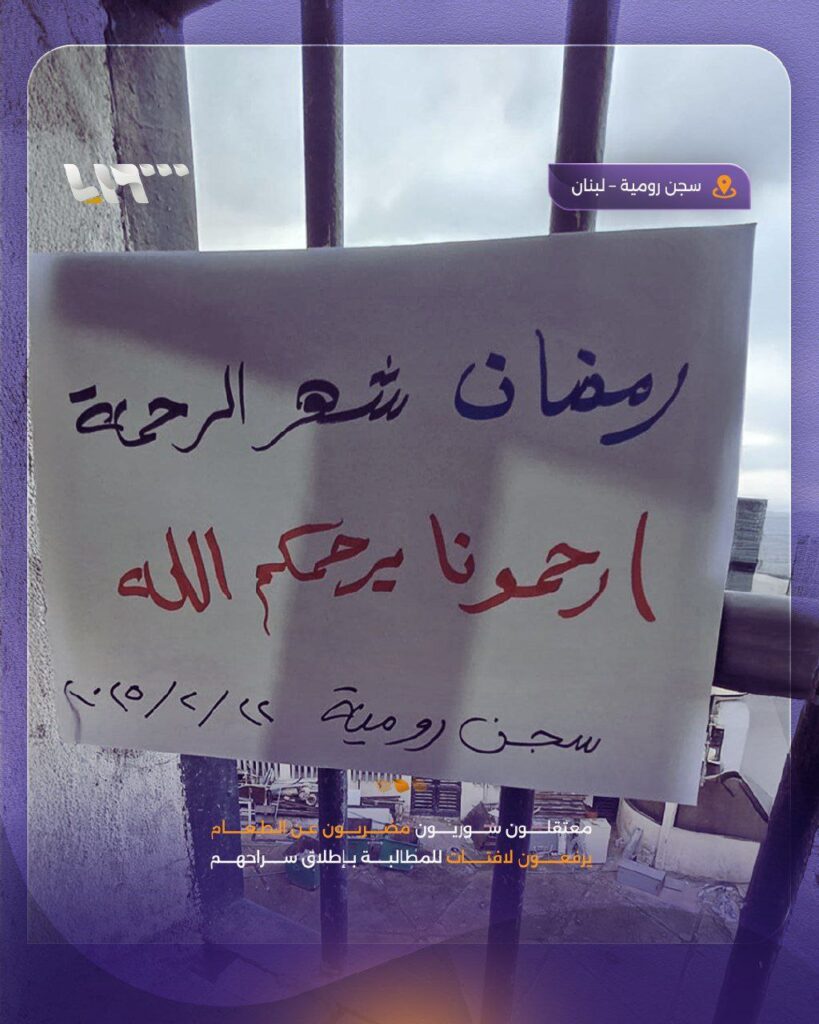 سجن رومية - لبنان
رمضان شهر الرحمة
ارحمونا يرحمكم الله
سجن رومية ٢٢/٢/٢٠٢٥
معتقلون سوريون مضربون عن الطعام
يرفعون لافتات للمطالبة بإطلاق سراحهم